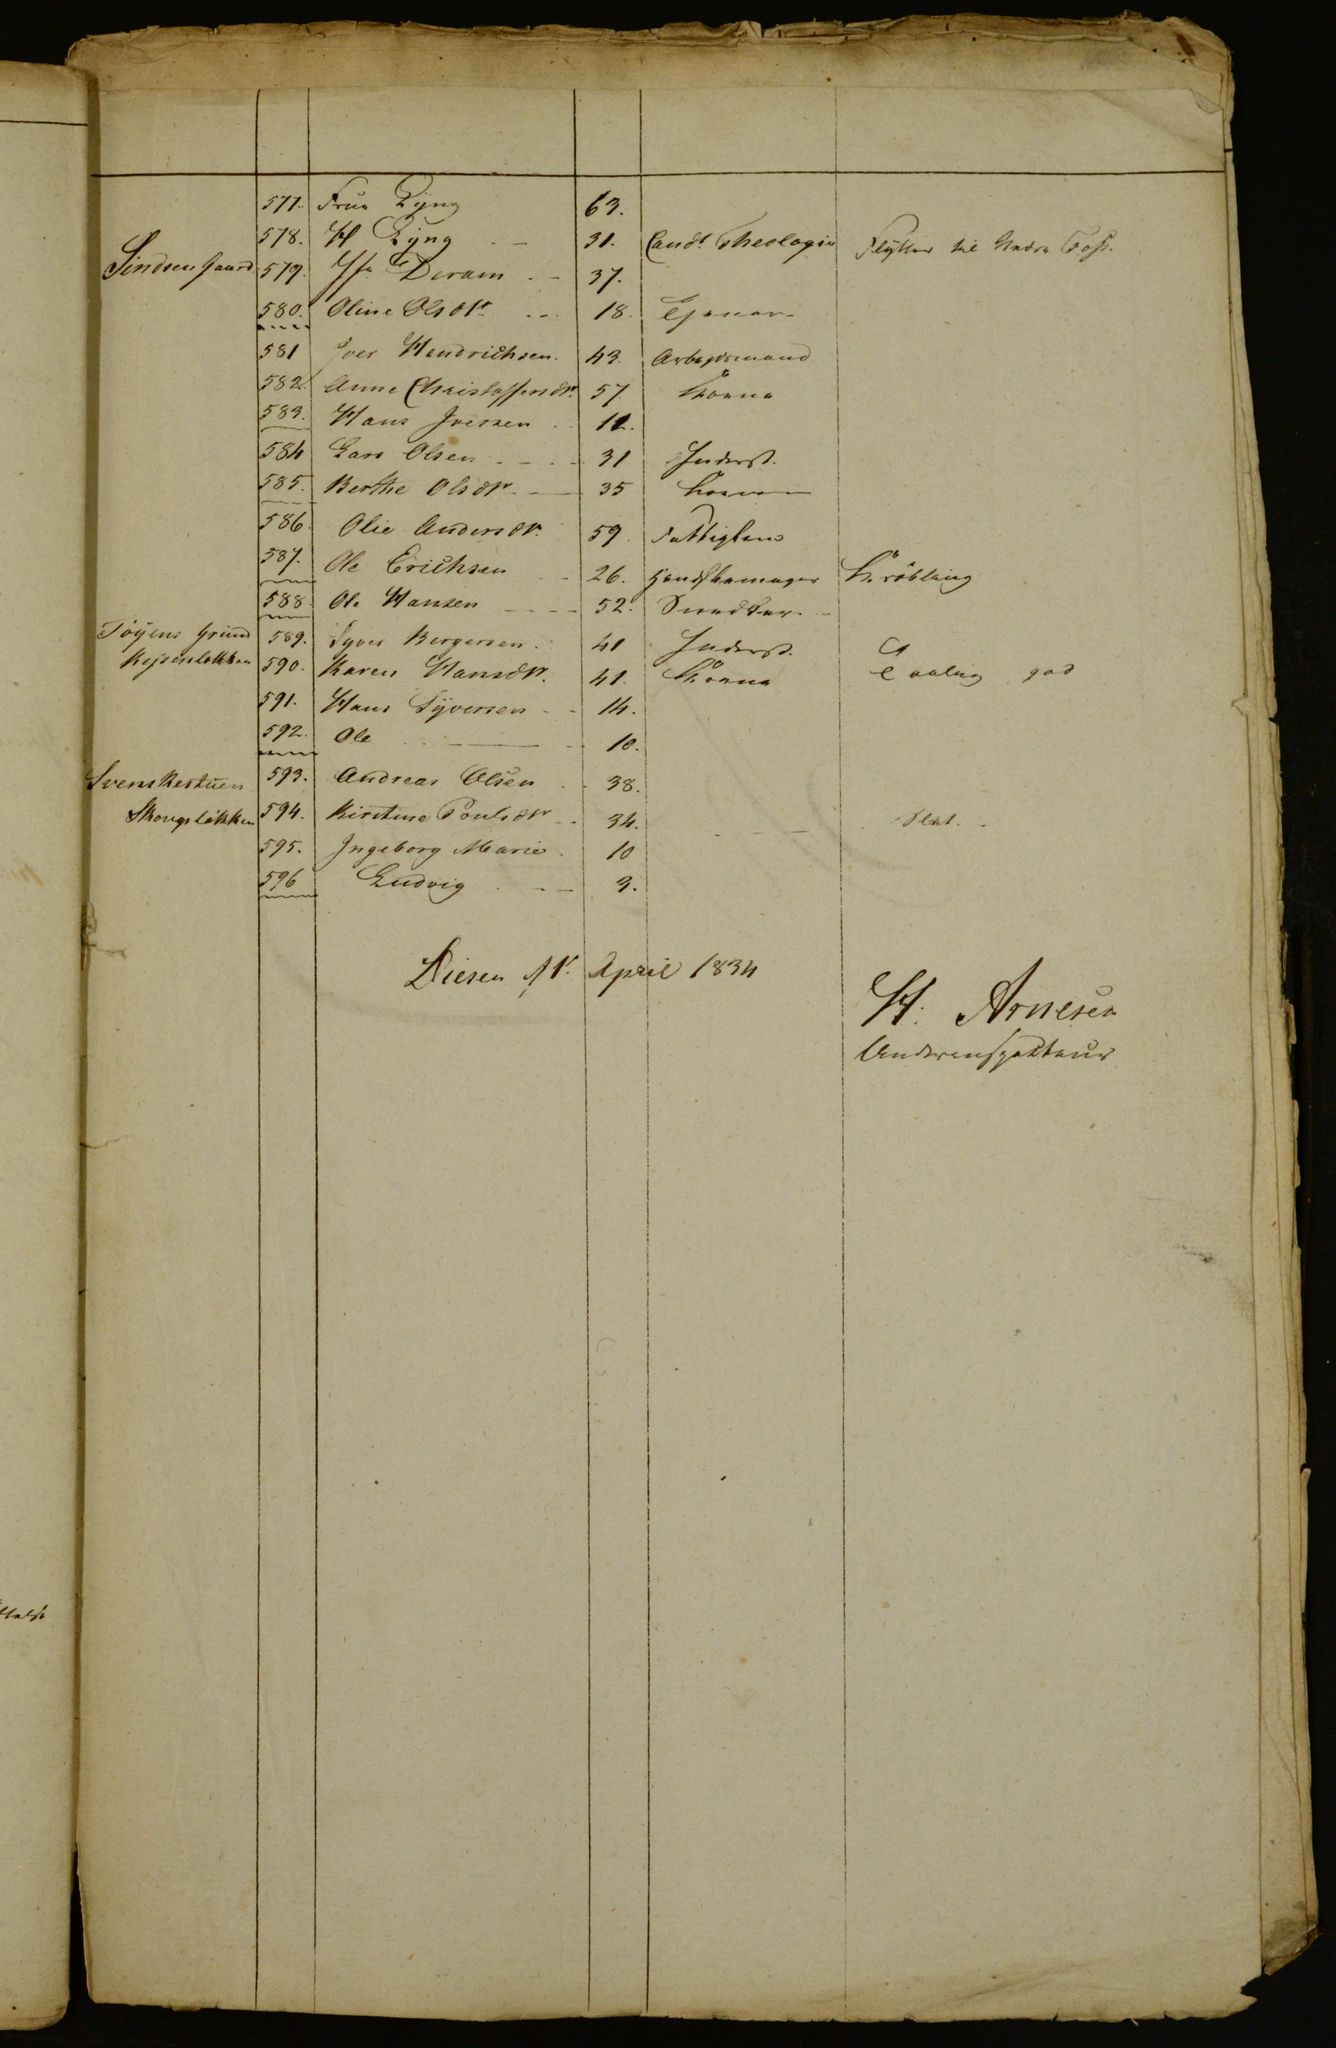 577. Frue Lÿng 63.
578. H Lÿng 31. Candt Theologie Flÿtter til Nedre Foss.
Sindsen Gaard 579. Jfr Deram 37.
580. Oline Olsdtr 18. Tjener
581 Iver Hendrichsen. 43. Arbejdsmand
582. Anne Christoffersdtr. 57 Kone
583. Hans Iversen 12.
584 Lars Olsen 31 Inderst.
585. Berthe Olsdtr 35 Kone
586. Olie Andersdtr. 59. Fattiglem
587. Ole Erichsen 26. Handskemager Krøbling
588. Ole Hansen 52. Snedker
Tøÿens Grund 589. Syver Bergersen. 41 Inderst.
Kejserløkken 590. Karen Hansdtr. 41. Kone Daalig god
591. Hans Sÿversen 14.
592. Ole 10.
Svenskestuen 593. Andreas Olsen 38.
Skougsløkken 594. Kirstine Poulsdtr 34. Slet.
595. Ingeborg Marie 10
596 Ludvig 3.
Diesen April 1834
H. Arnesen
Underinspekteur